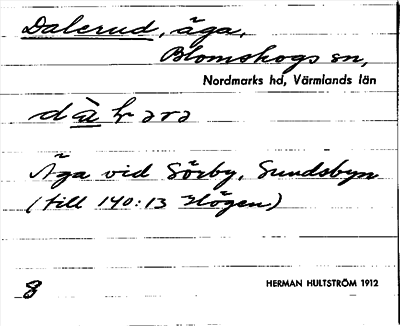 Dalerud, äga,
Blomskogs sn,
Nordmarks hd, Värmlands län
Äga vid Sörby, Sundsbyn
(till 140:13 Högen)
8
HERMAN HULTSTRÖM 1912